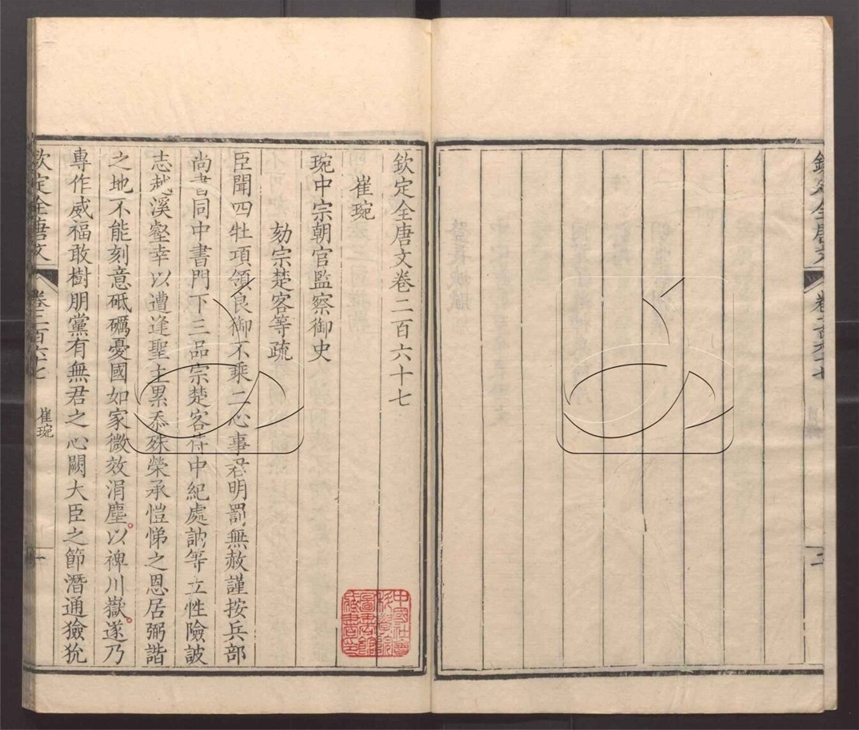 欽定全唐文卷二百六十七
崔琬
琬中宗朝官監察御史
劾宗楚客等疏
臣聞四牡項領良御不乘二心事君明罰無赦謹按兵部
尚書同中書門下三品宗楚客侍中紀處訥等立性險詖
志越溪壑幸以遭逢聖主累忝殊榮承愷悌之恩居弼諧
之地不能刻意砥礪憂國如家微效涓塵以裨川嶽遂乃
專作威福敢樹朋黨有無君之心闕大臣之節潛通獫狁
欽定全唐文
卷二百六十七
崔琬
一